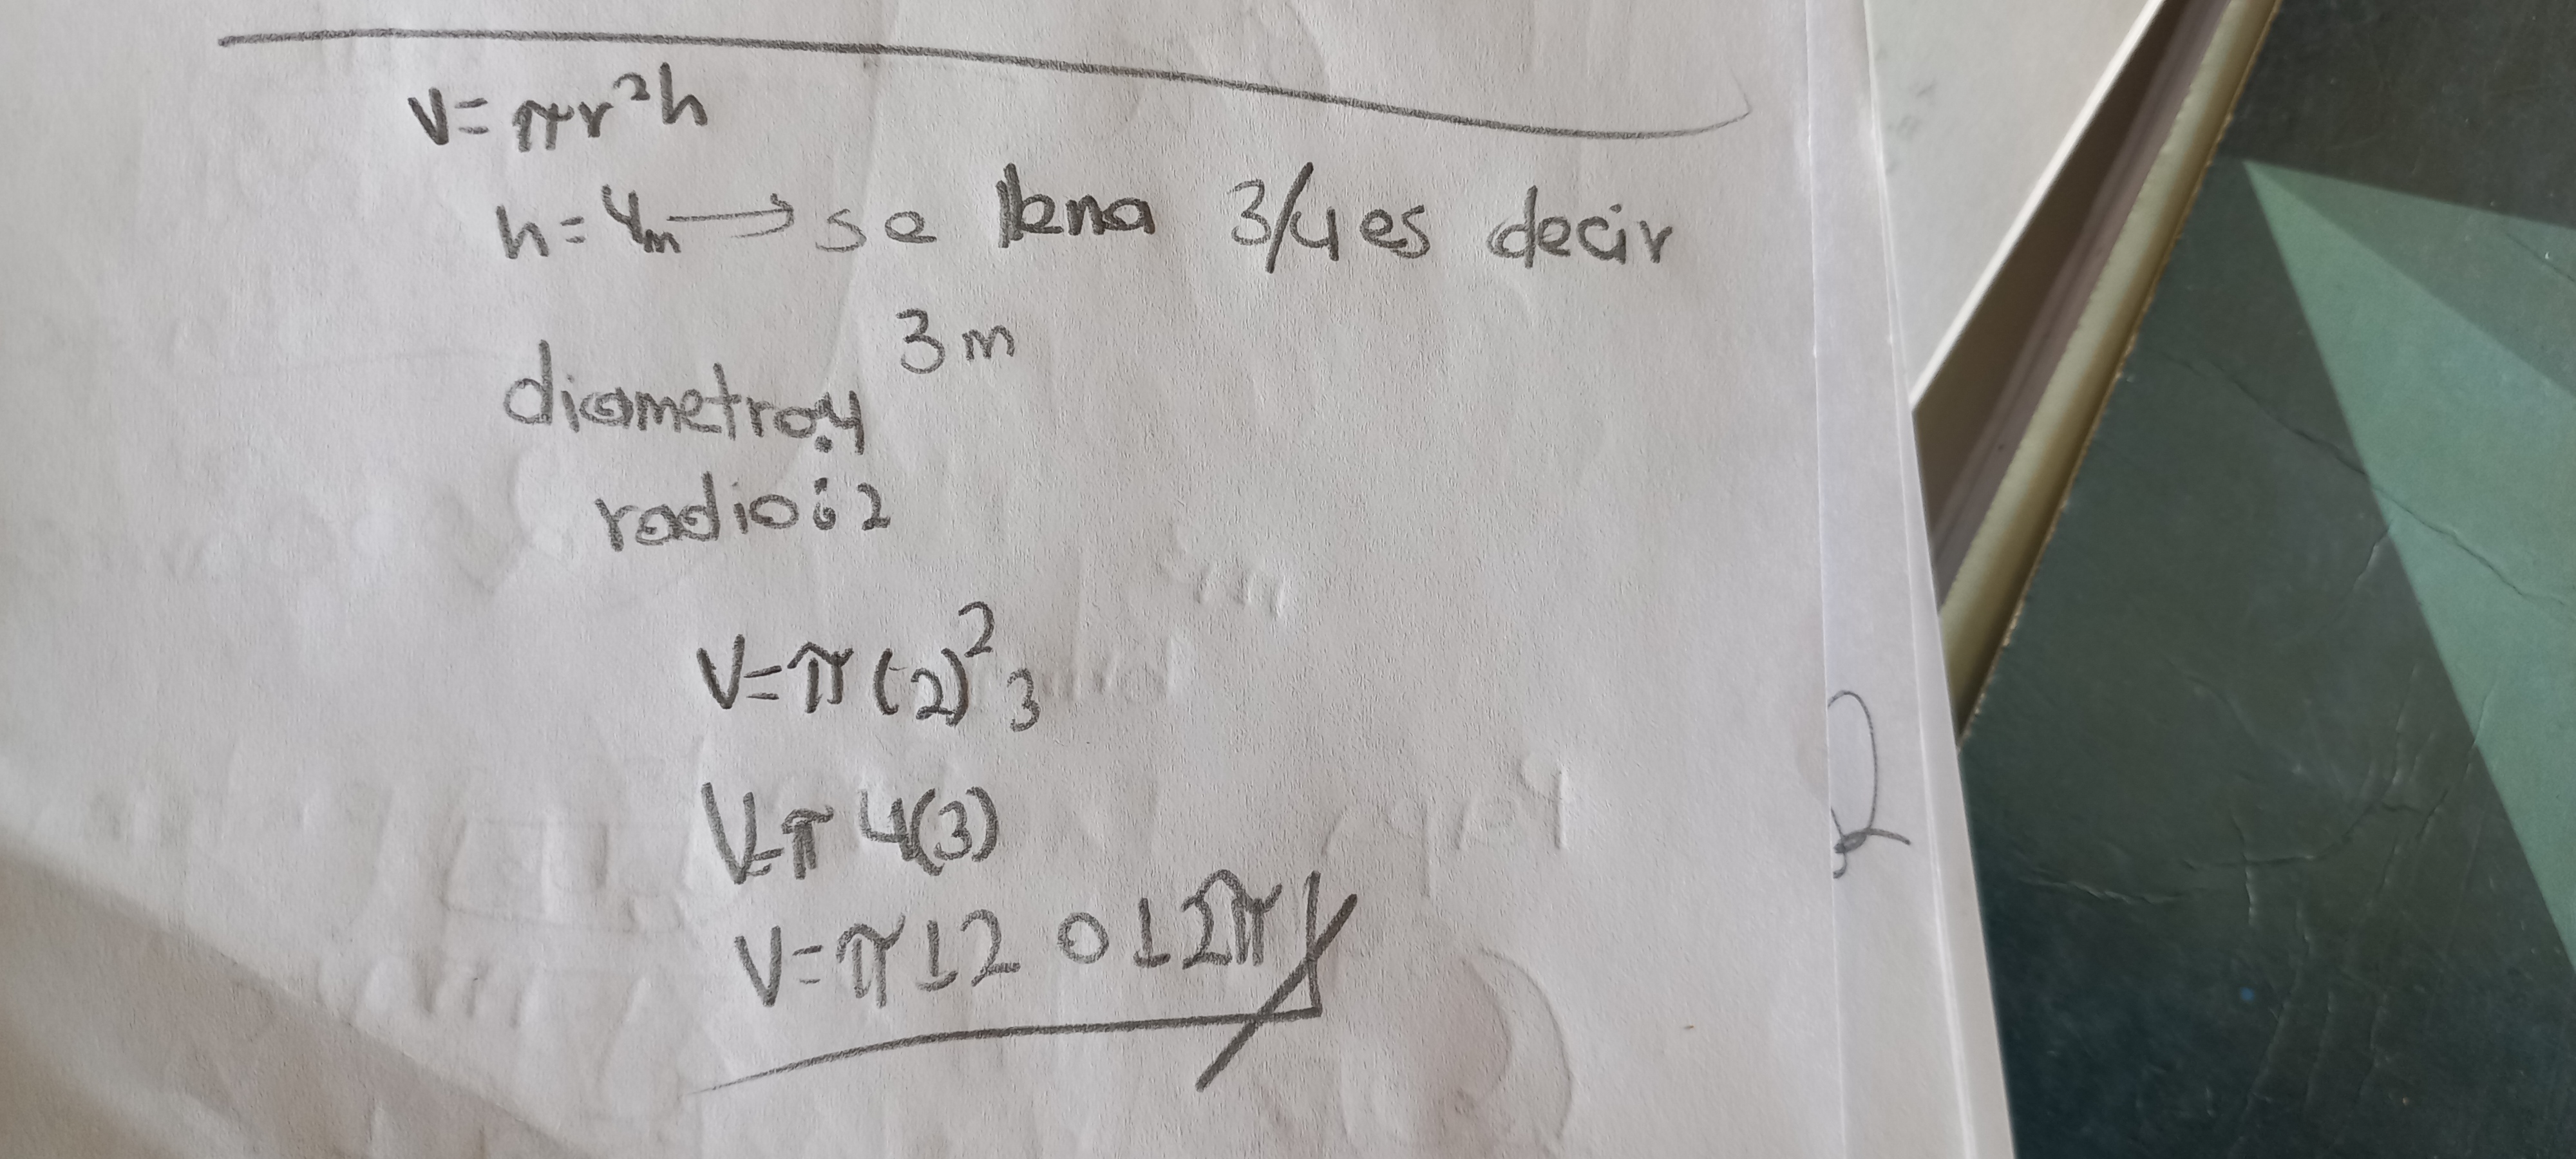 V= πr²h
h= 4m → se llena 3/4 es decir
3 m
diametro:4
radio: 2
V= π (2)² 3
V= π 4(3)
V= π 12 o 12π
2